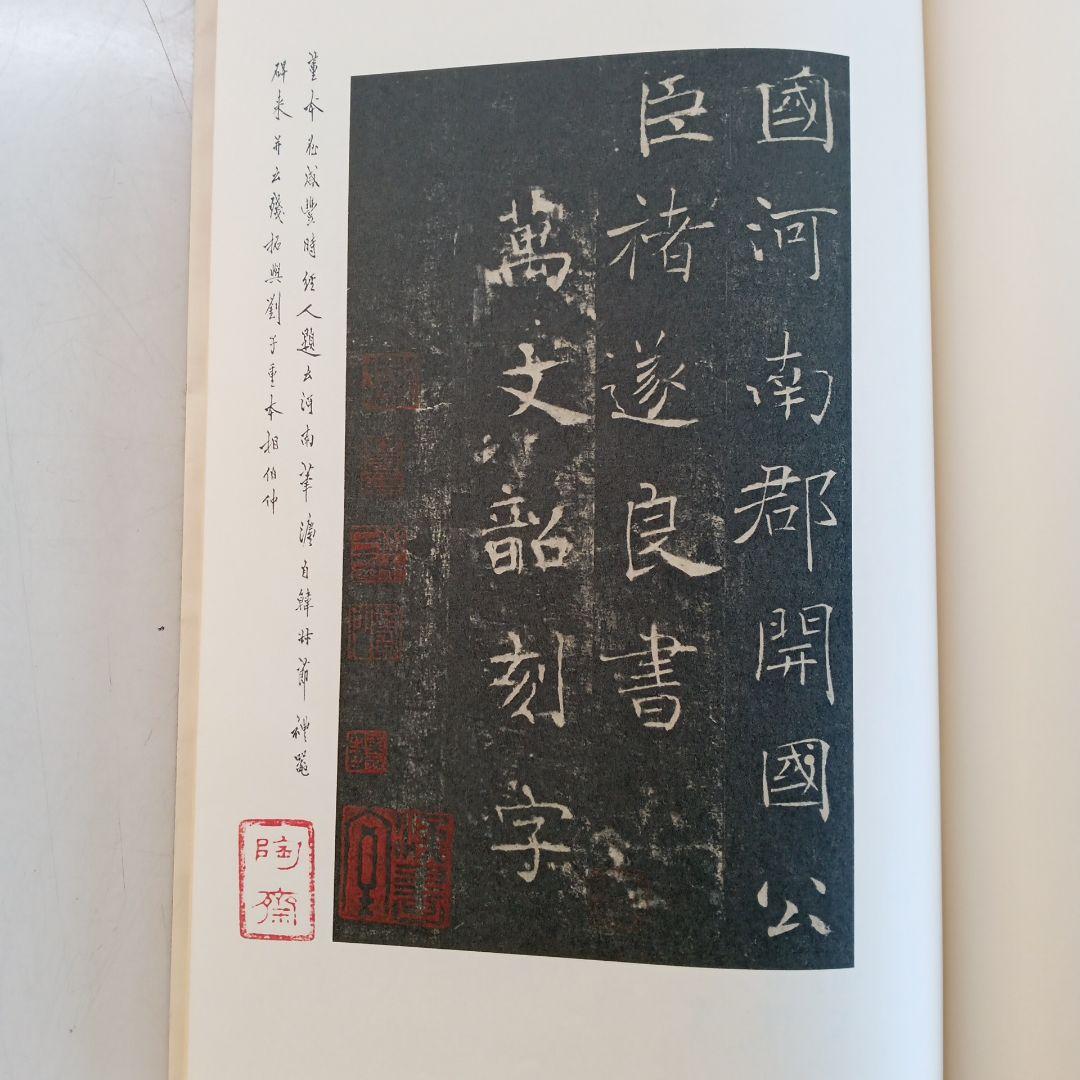 國河南郡開國公
臣褚遂良書
萬文韶刻字
董本在咸豐時經人題云河南筆法自韓叔節禮器
碑来并云殘拓與劉子重本相伯仲
陶齋